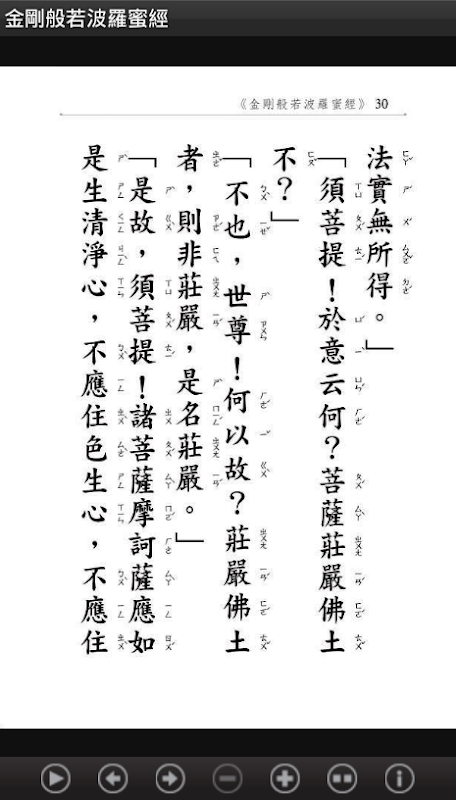 金剛般若波羅蜜經
《金剛般若波羅蜜經》 30
法實無所得。」
「須菩提！於意云何？菩薩莊嚴佛土
不？」
「不也，世尊！何以故？莊嚴佛土
者，則非莊嚴，是名莊嚴。」
「是故，須菩提！諸菩薩摩訶薩應如
是生清淨心，不應住色生心，不應住